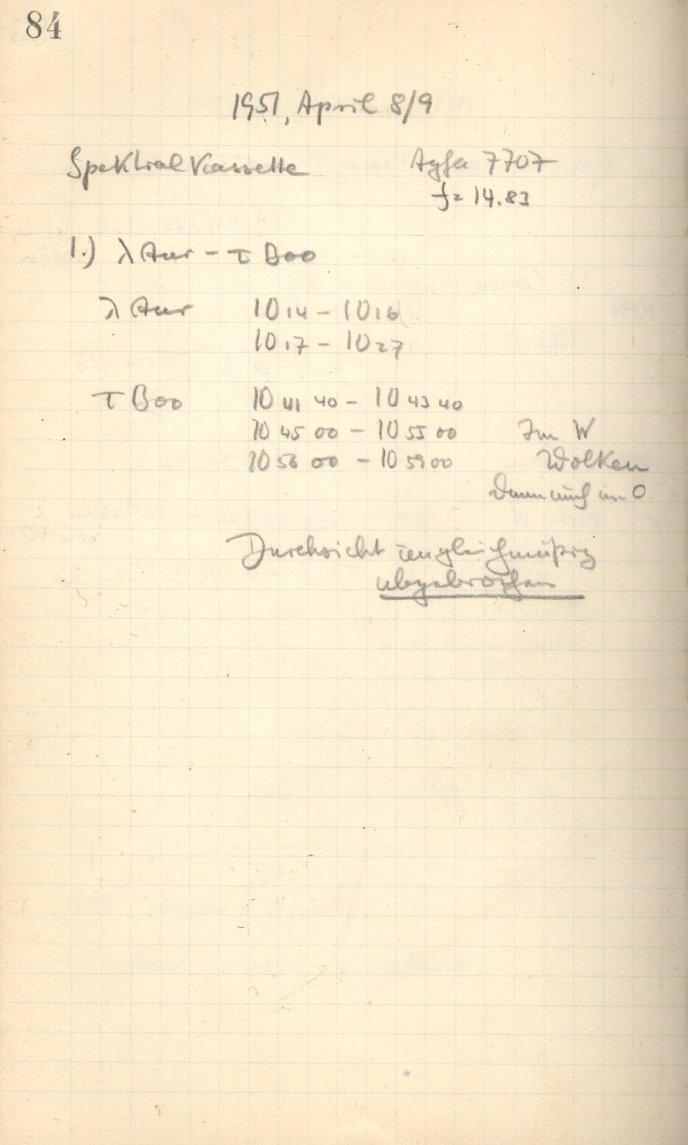 84
1951, April 8/9
Spektralkassette Agfa 7707
f = 14.83
1.) λ Aur – τ Boo
λ Aur 10 14 – 10 16
10 17 – 10 27
τ Boo 10 41 40 – 10 43 40
10 45 00 – 10 55 00 Im W
10 56 00 – 10 59 00 Wolken
Dann auch im O
Durchsicht ungleichmäßig
abgebrochen